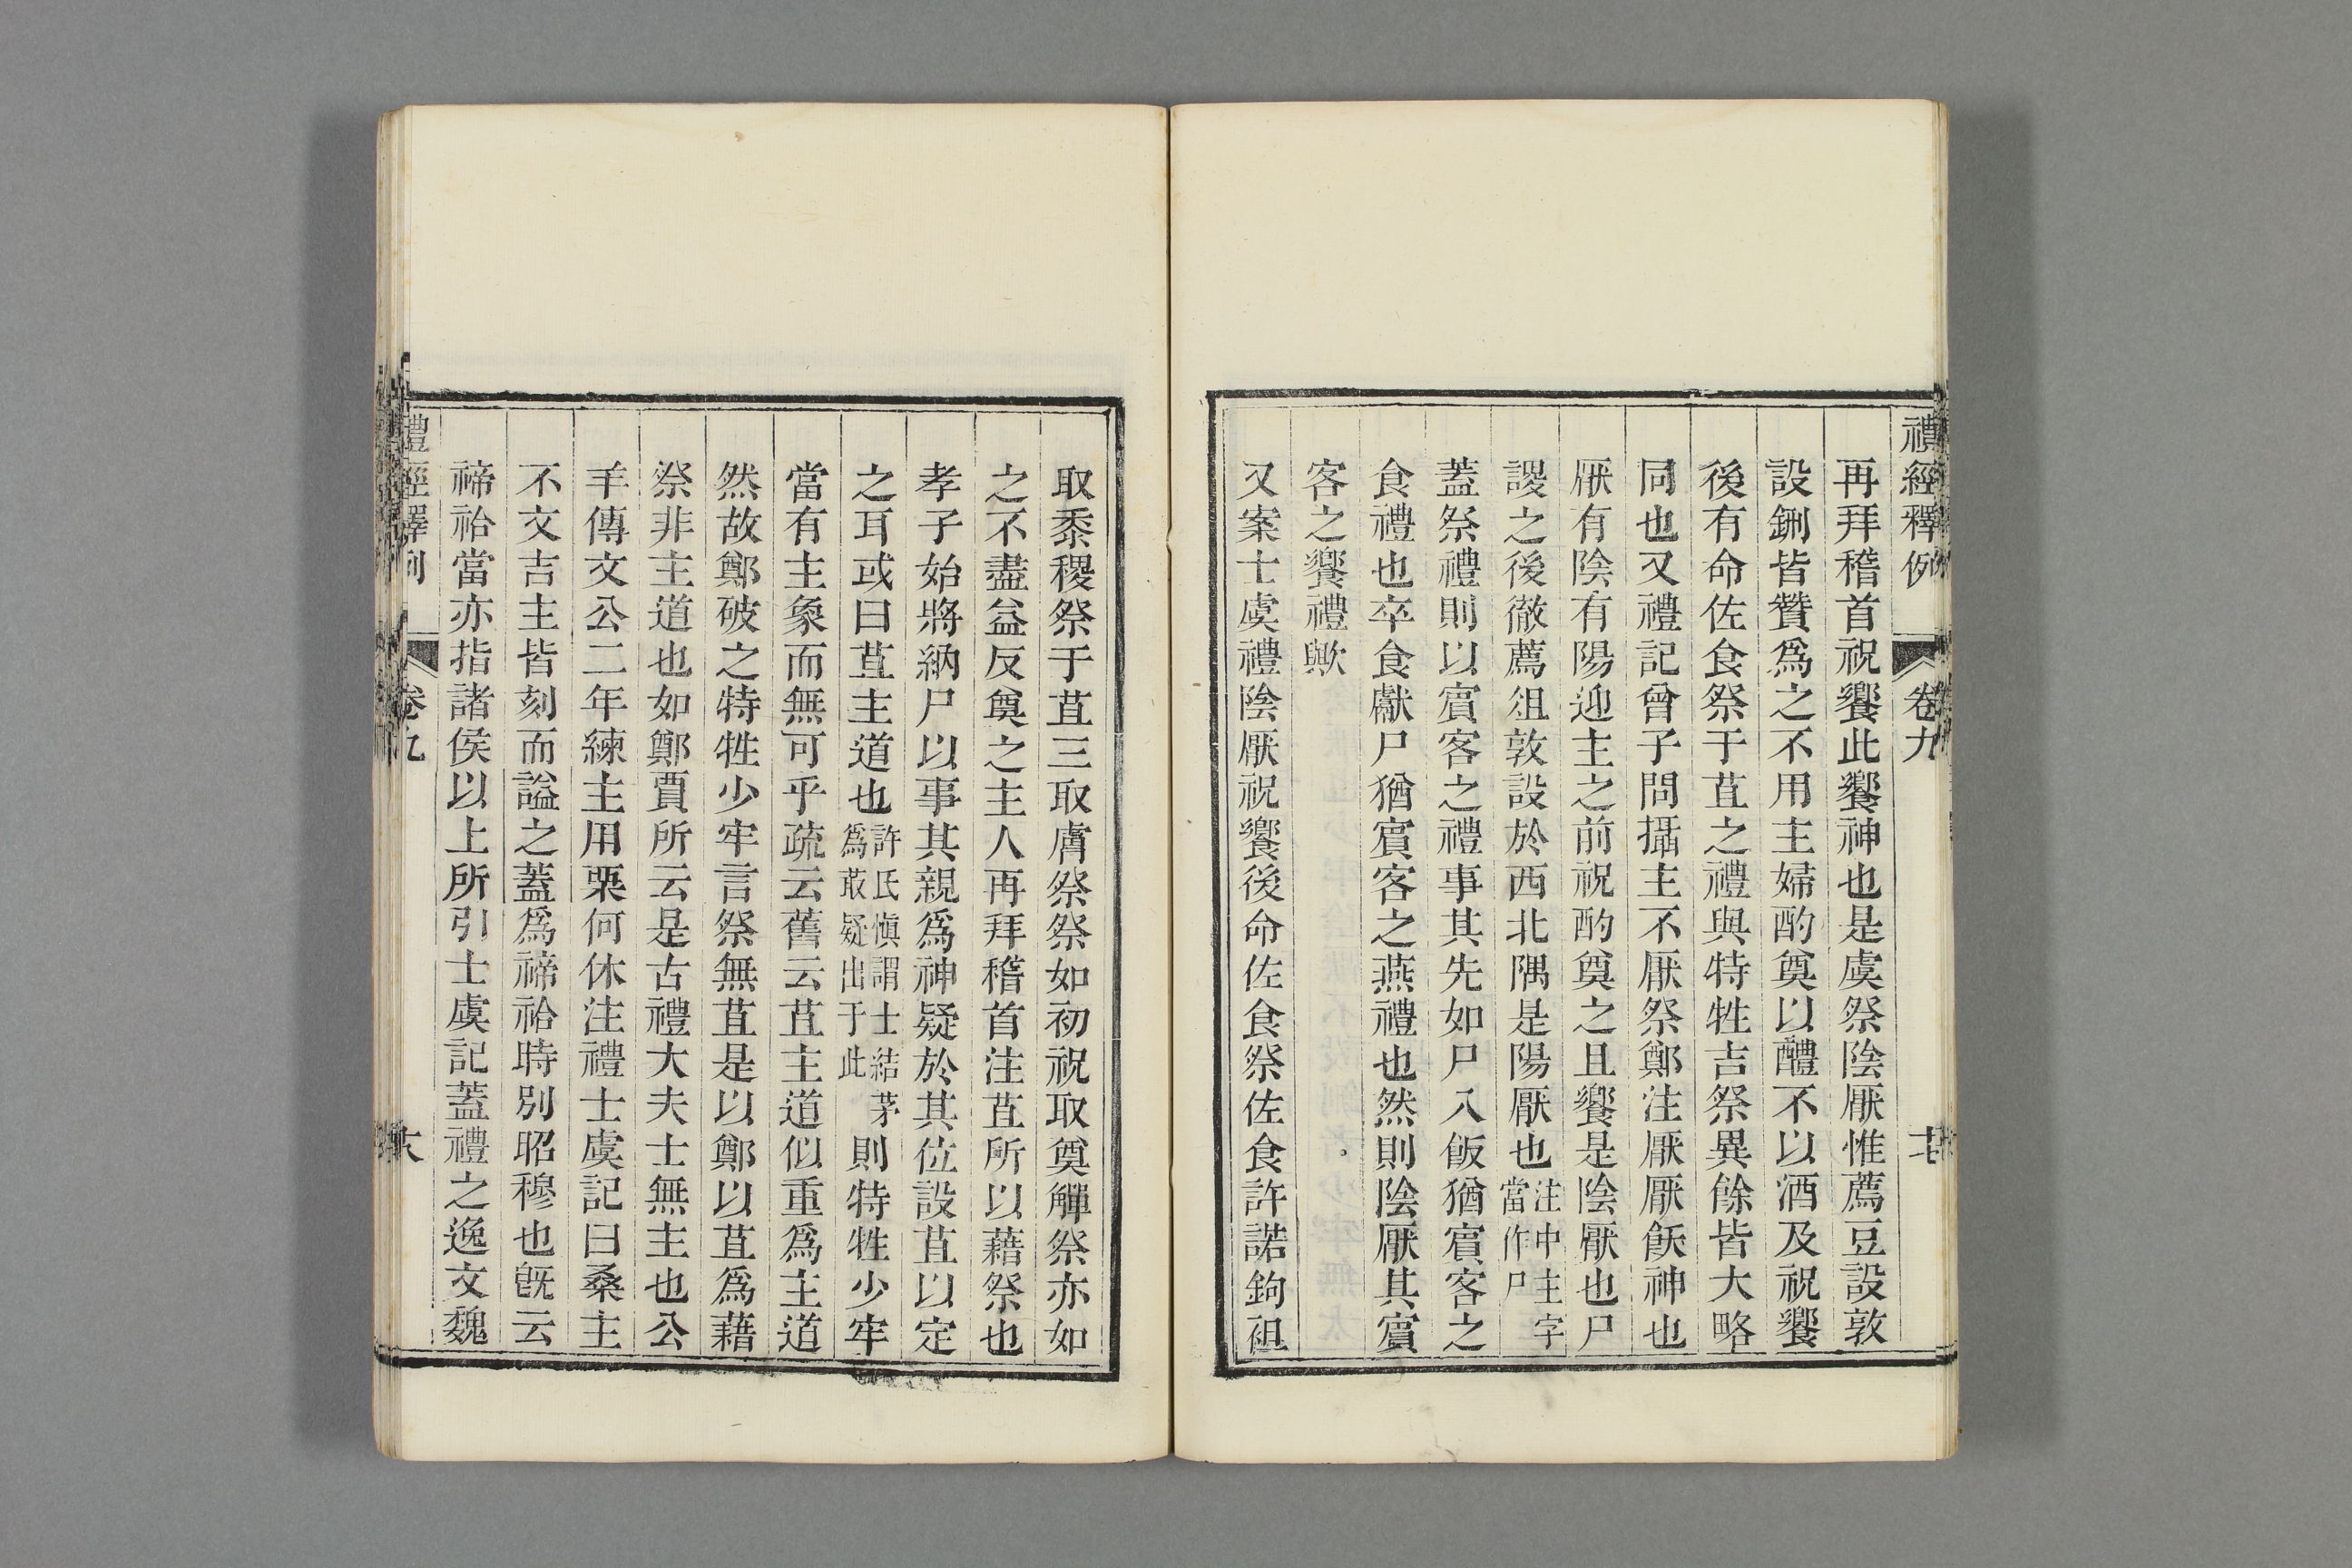 禮經釋例 卷九 七
再拜稽首祝饗此饗神也是虞祭陰厭惟薦豆設敦
設鉶皆贊爲之不用主婦酌奠以醴不以酒及祝饗
後有命佐食祭于苴之禮與特牲吉祭異餘皆大略
同也又禮記曾子問攝主不厭祭鄭注厭厭飫神也
厭有陰有陽迎主之前祝酌奠之且饗是陰厭也尸
謖之後徹薦俎敦設於西北隅是陽厭也注中主字當作尸
蓋祭禮則以賓客之禮事其先如尸入飯猶賓客之
食禮也卒食獻尸猶賓客之燕禮也然則陰厭其賓
客之饗禮歟
又案士虞禮陰厭祝饗後命佐食祭佐食許諾鉤袒
取黍稷祭于苴三取膚祭祭如初祝取奠觶祭亦如
之不盡益反奠之主人再拜稽首注苴所以藉祭也
孝子始將納尸以事其親爲神疑於其位設苴以定
之耳或曰苴主道也許氏愼謂士結茅爲菆疑出于此則特牲少牢
當有主象而無可乎疏云舊云苴主道似重爲主道
然故鄭破之特牲少牢言祭無苴是以鄭以苴爲藉
祭非主道也如鄭賈所云是古禮大夫士無主也公
羊傳文公二年練主用栗何休注禮士虞記曰桑主
不文吉主皆刻而謚之蓋爲禘祫時別昭穆也旣云
禘祫當亦指諸侯以上所引士虞記蓋禮之逸文魏
禮經釋例 卷九